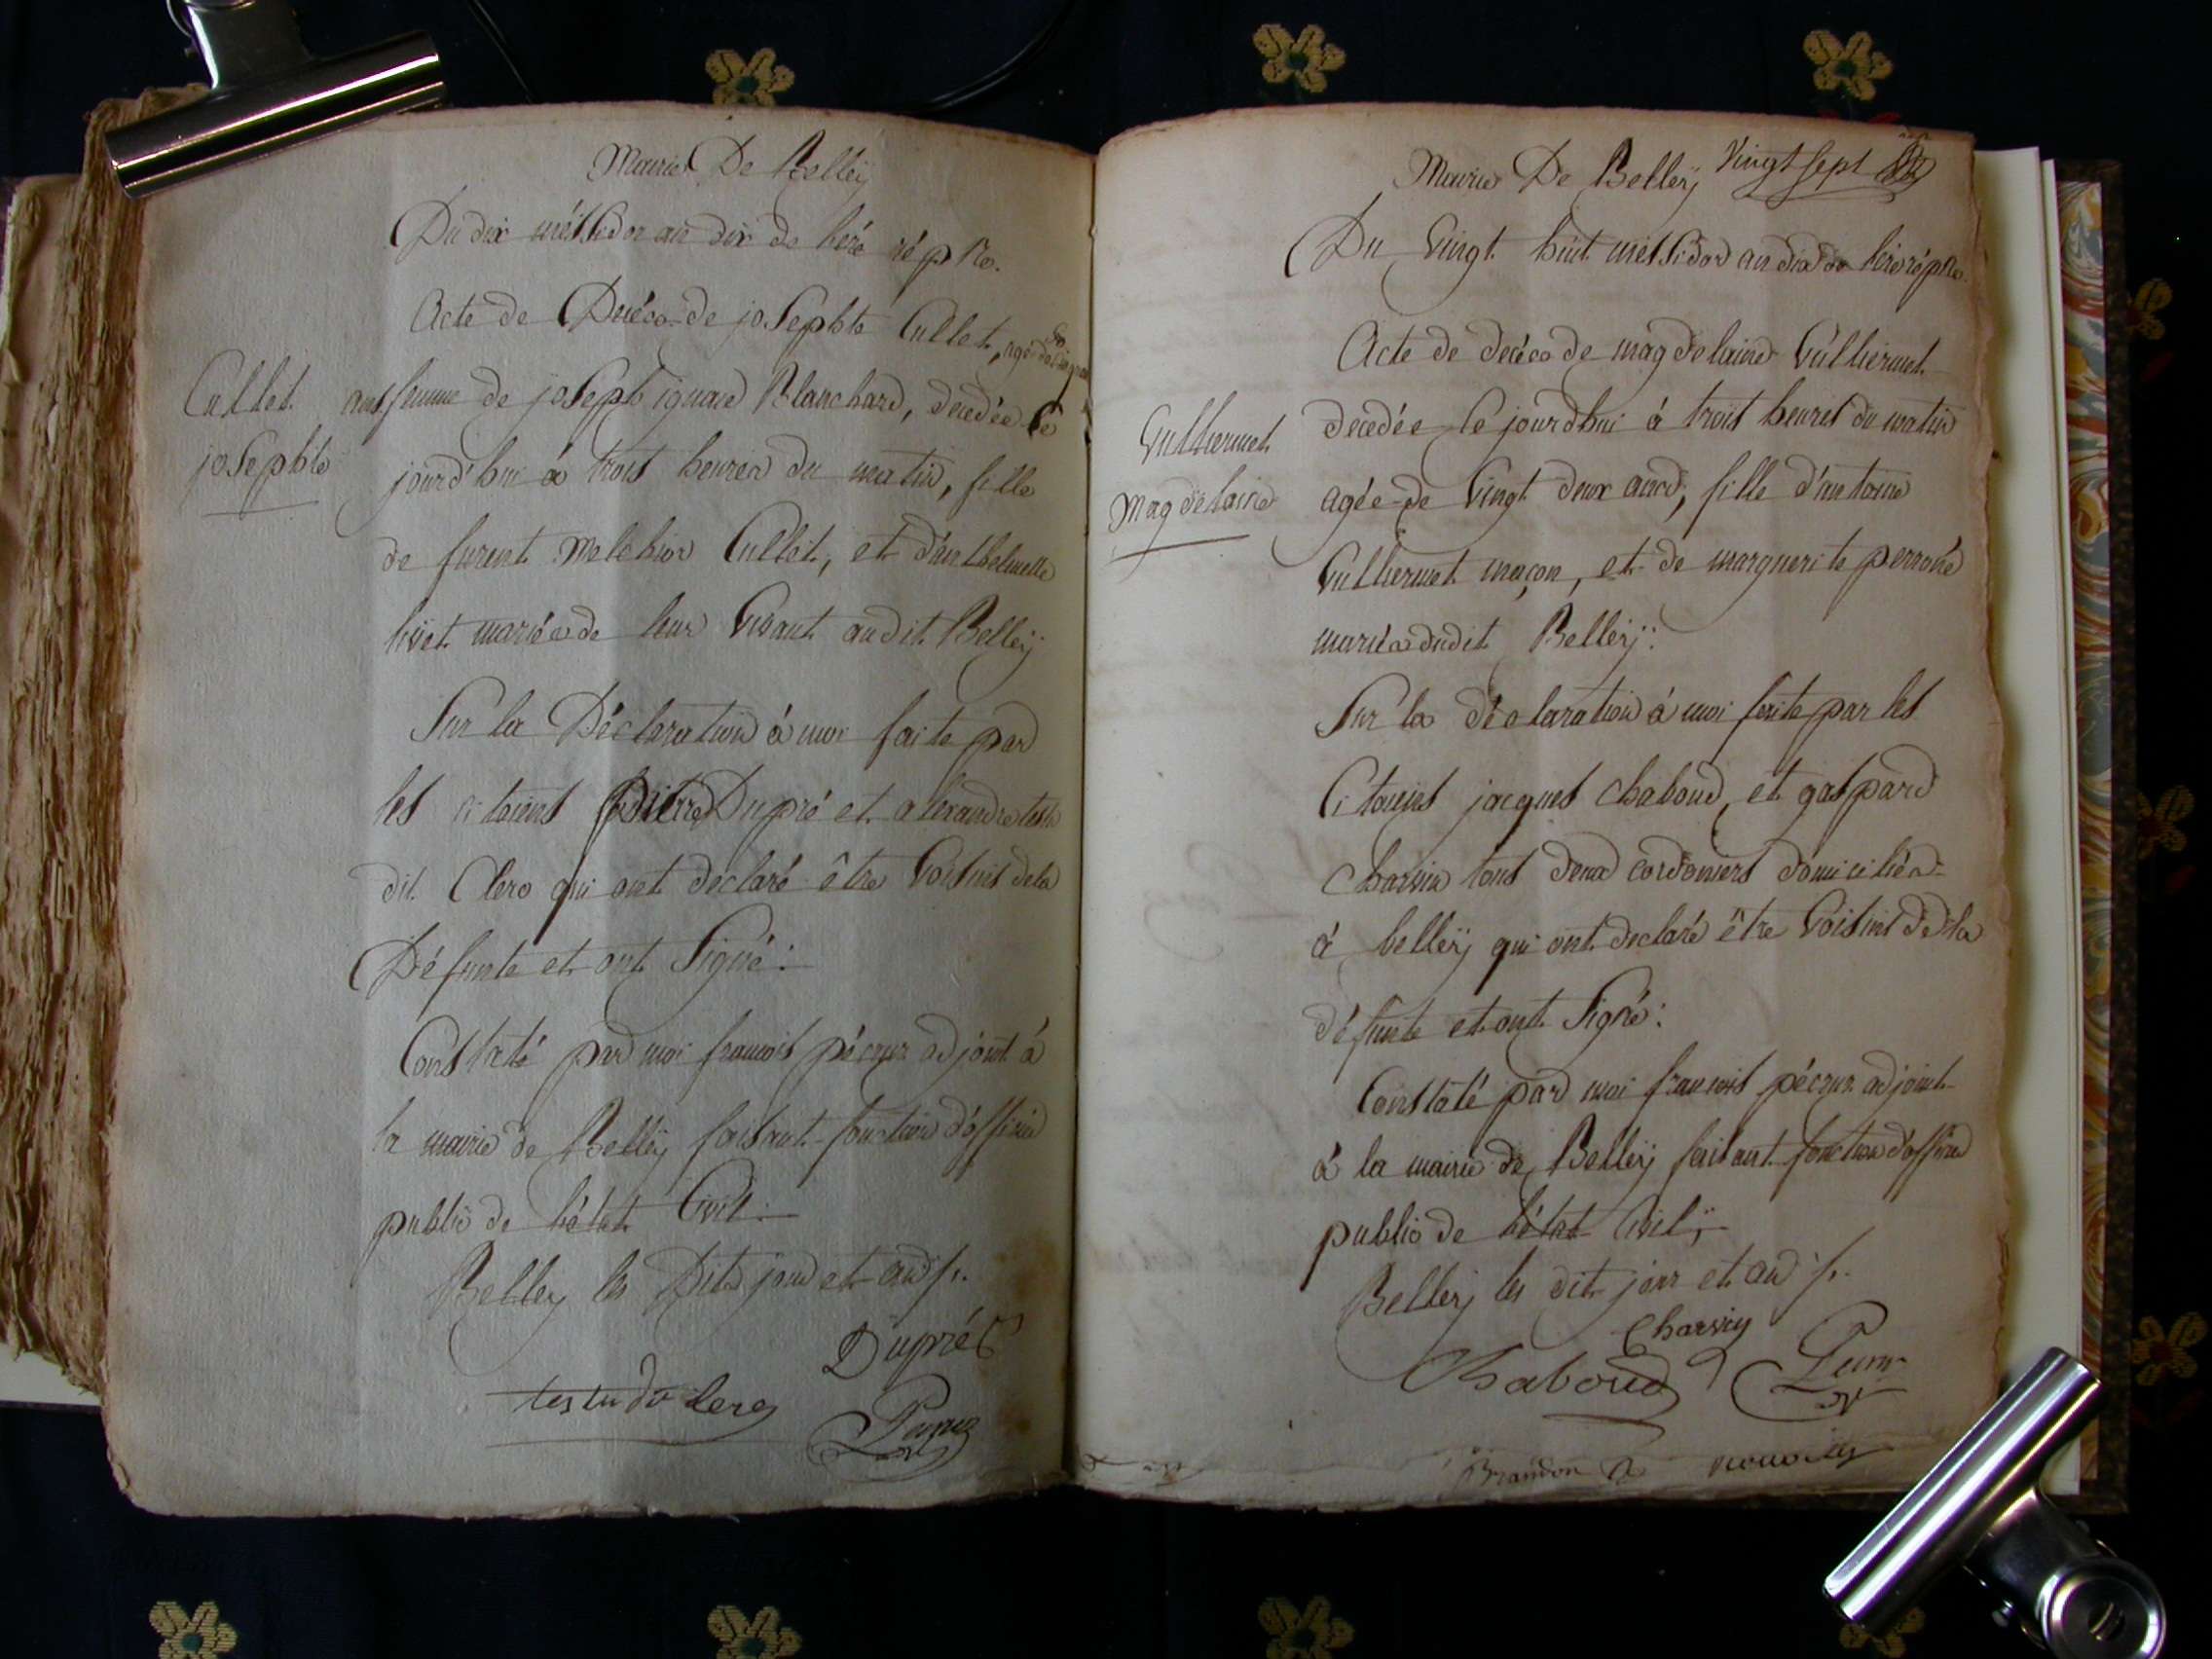 Mairie De Belleÿ
Du dix messidor an dix de l'ère rép ne.
Acte de Décès de josephte Cullet, agée de
Cullet
josephte
ans femme de joseph ignace Blanchard, decedée ce
jourd'hui à trois heures du matin, fille
de furent Melchior Cullet, et d'anthelmette
livet mariés de leur Vivant audit Belleÿ
Sur la Déclaration à moi faite par
les citoiens pierre Dupré et alexandre testu
dit Clerc qui ont declaré être Voisins de la
Défunte et ont Signé :
Constaté par moi francois pécour adjoint à
la mairie de Belleÿ faisant fonction d'officier
public de l'état Civil :
Belley les Dits jour et an /.
Dupré
testu du clerc
Pecour
Mairie De Belleÿ Vingt sept
Du Vingt huit messidor an dix de l'ère rép ne.
Acte de decés de magdelaine Vulliermet
Vulliermet
Magdelaine
decedée ce jourdhui à trois heures du matin
agée de Vingt deux ans, fille d'antoine
Vulliermet maçon, et de marguerite perron
mariés dudit Belleÿ :
Sur la déclaration à moi faite par les
Citoiens jacques chaboud, et gaspard
Charvin tous deux cordoniers domiciliés
à belleÿ qui ont declaré être Voisins de la
défunte et ont Signé :
Constaté par moi francois pécour adjoint
à la mairie de Belleÿ faisant fonction d'officier
public de l'état Civil ;
Belleÿ les dit jour et an /.
Charvin
Chaboud
Pecour
Brandon